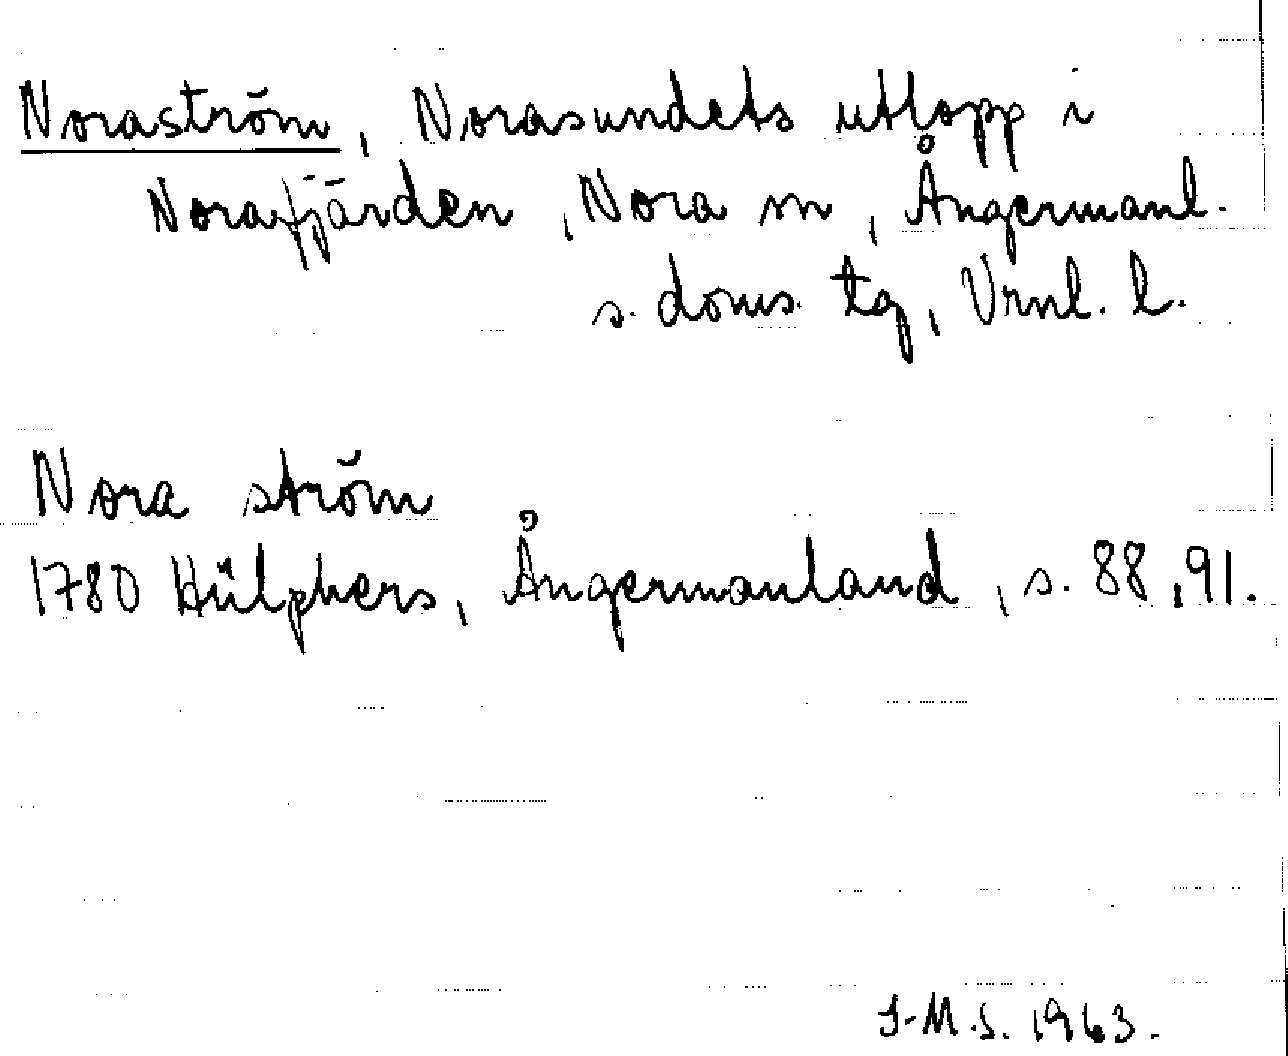 Noraström, Norasundets utlopp i
Norafjärden, Nora sn, Ångermanl.
s. doms. tg, Vrnl. l.
Nora ström
1780 Hülphers, Ångermanland, s. 88, 91.
I-M.S. 1963.